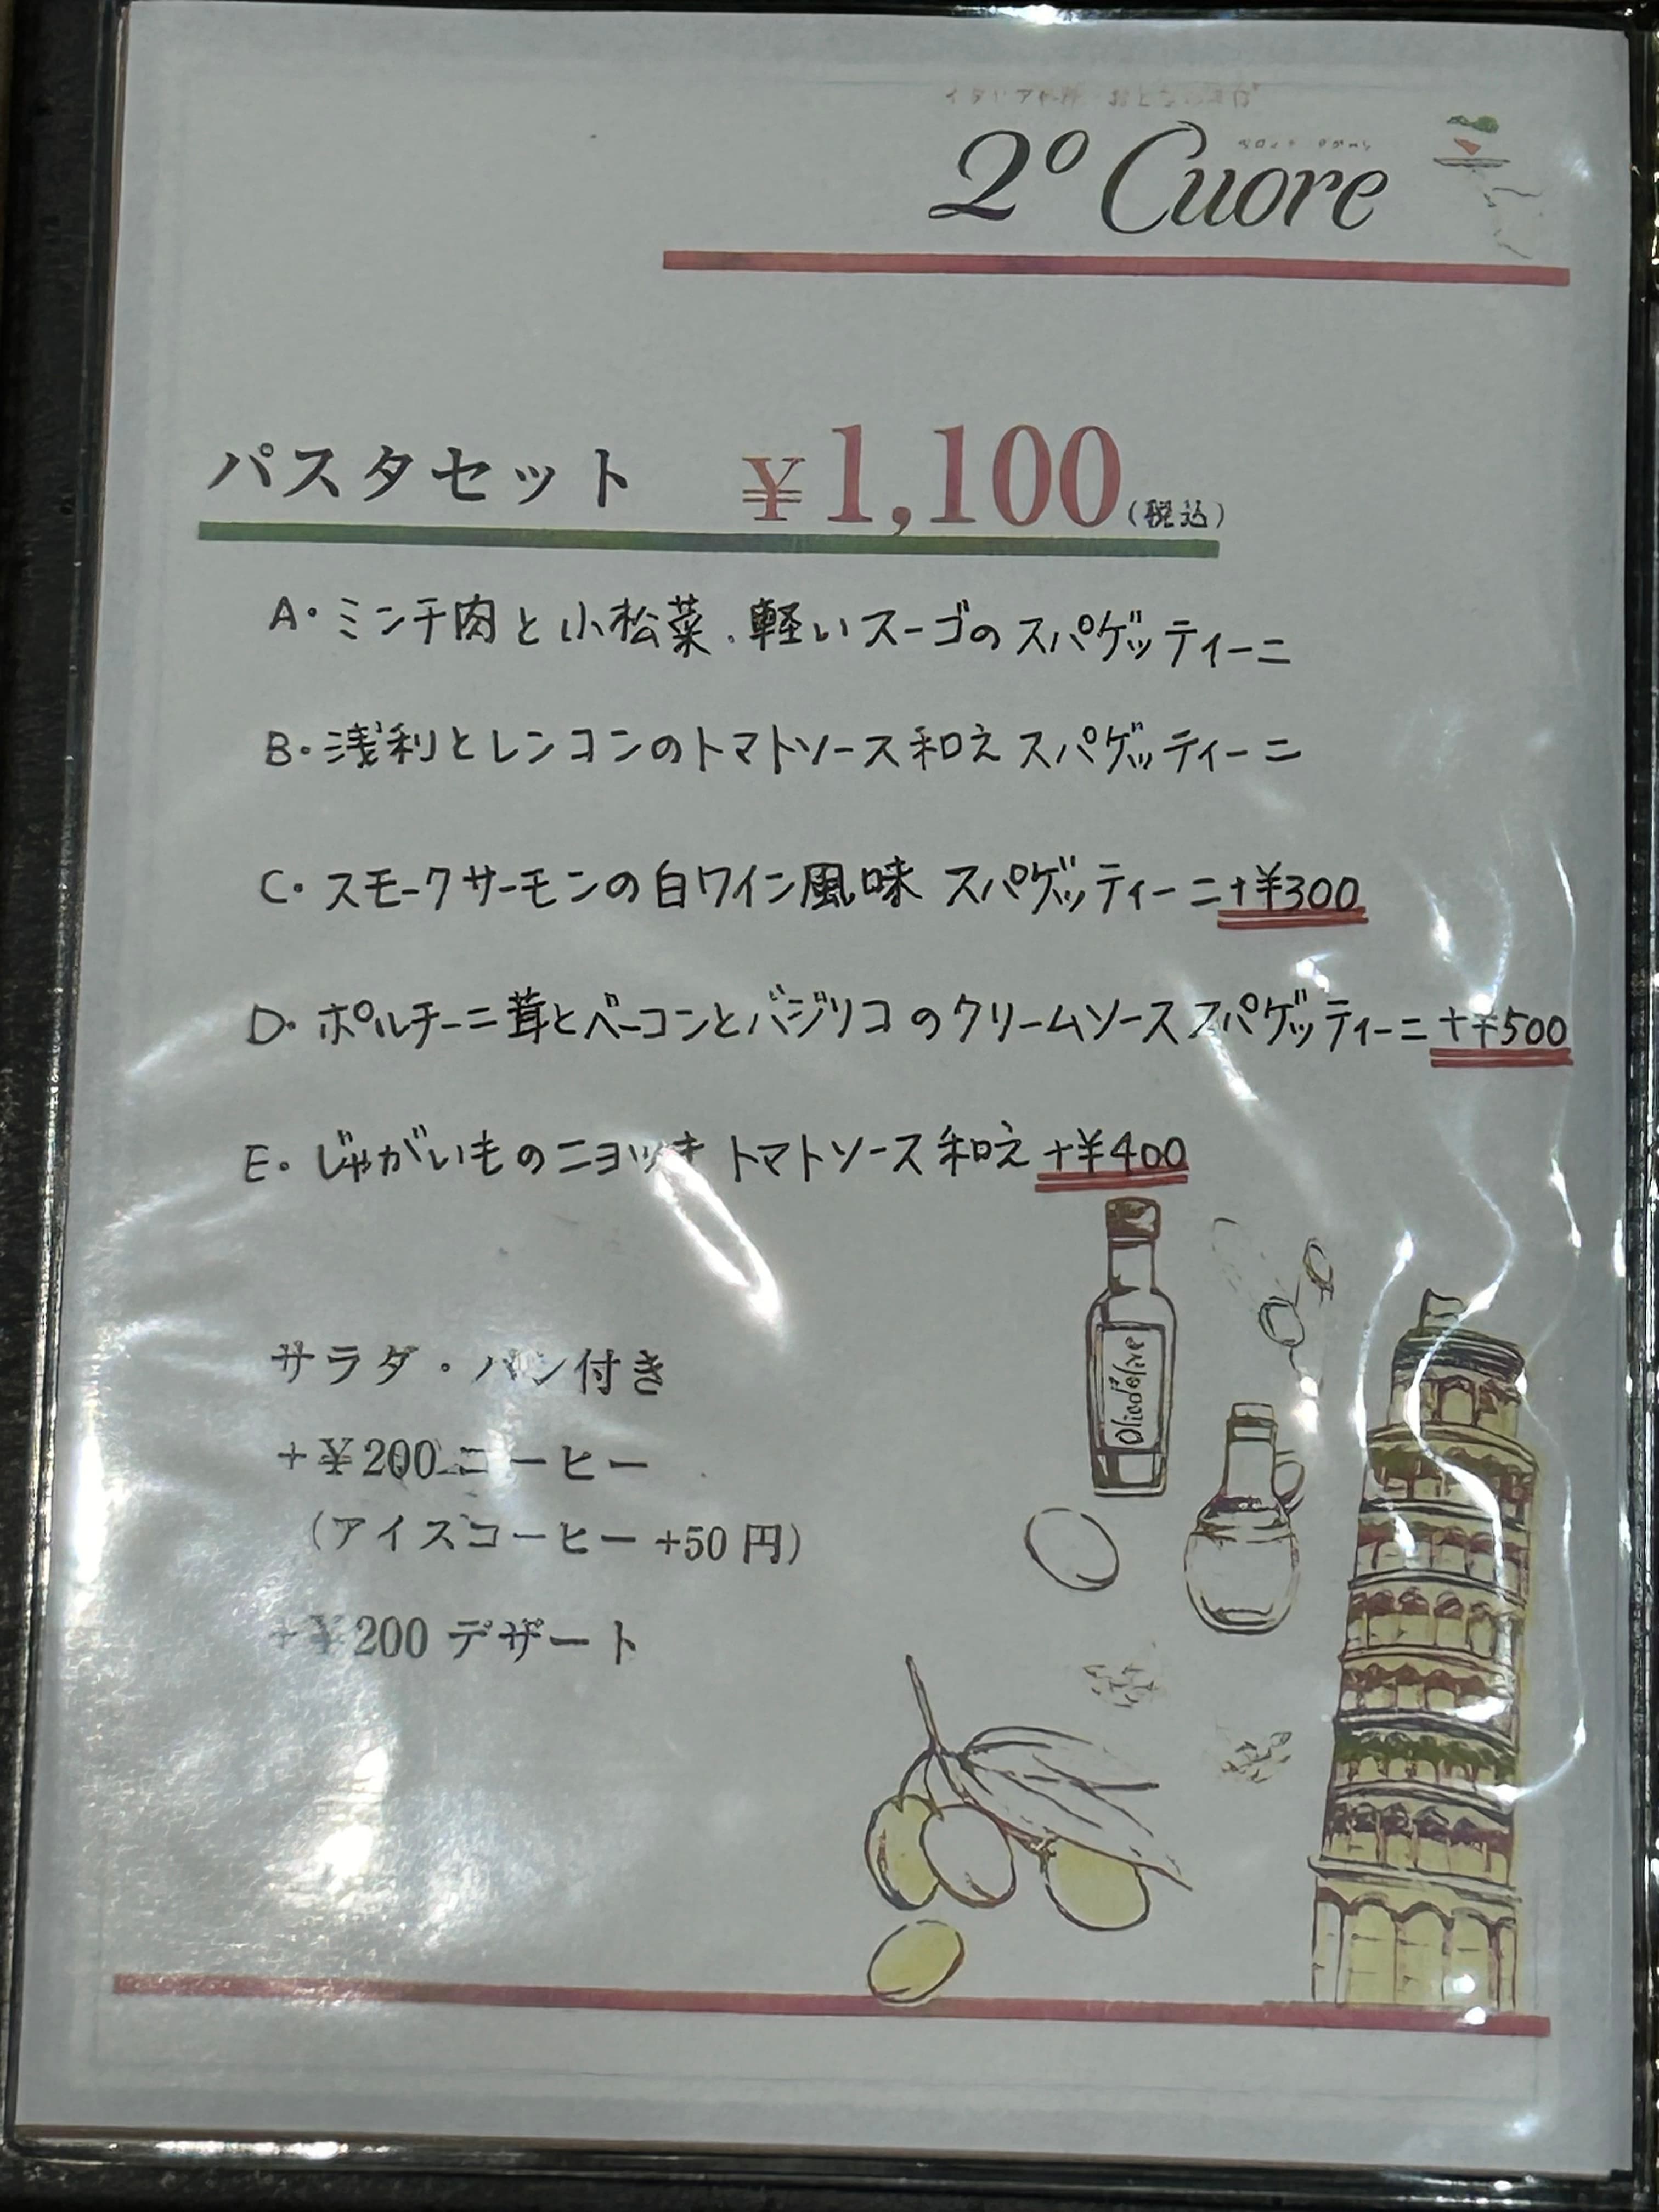 2º Cuore
パスタセット ¥1,100(税込)
A・ミンチ肉と小松菜、軽いスーゴのスパゲッティーニ
B・浅利とレンコンのトマトソース和え スパゲッティーニ
C・スモークサーモンの白ワイン風味 スパゲッティーニ+¥300
D・ポルチーニ茸とベーコンとバジリコのクリームソース スパゲッティーニ+¥500
E・じゃがいものニョッキ トマトソース和え+¥400
サラダ・パン付き
+¥200コーヒー
(アイスコーヒー+50円)
+¥200デザート